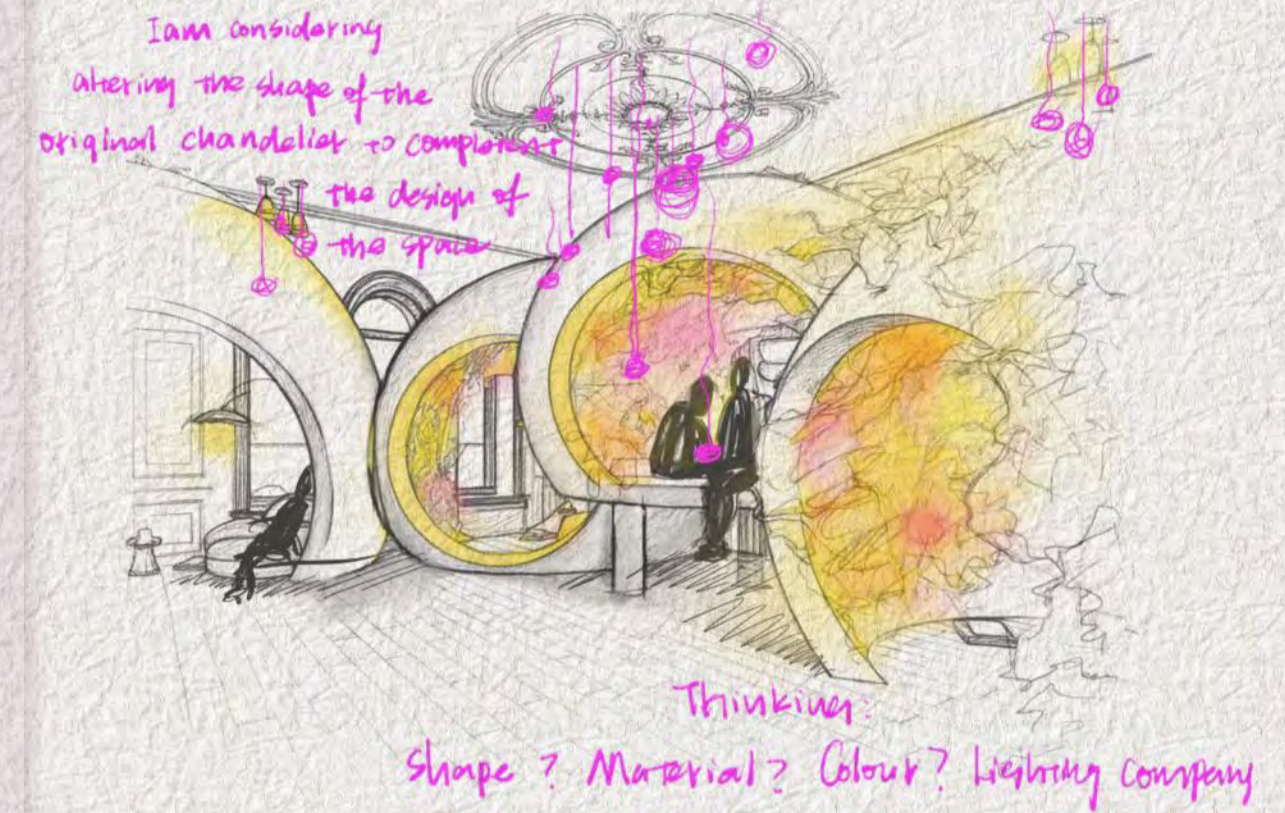 I am considering
altering the shape of the
original chandelier to complement
the design of
the space
Thinking:
Shape? Material? Colour? Lighting company